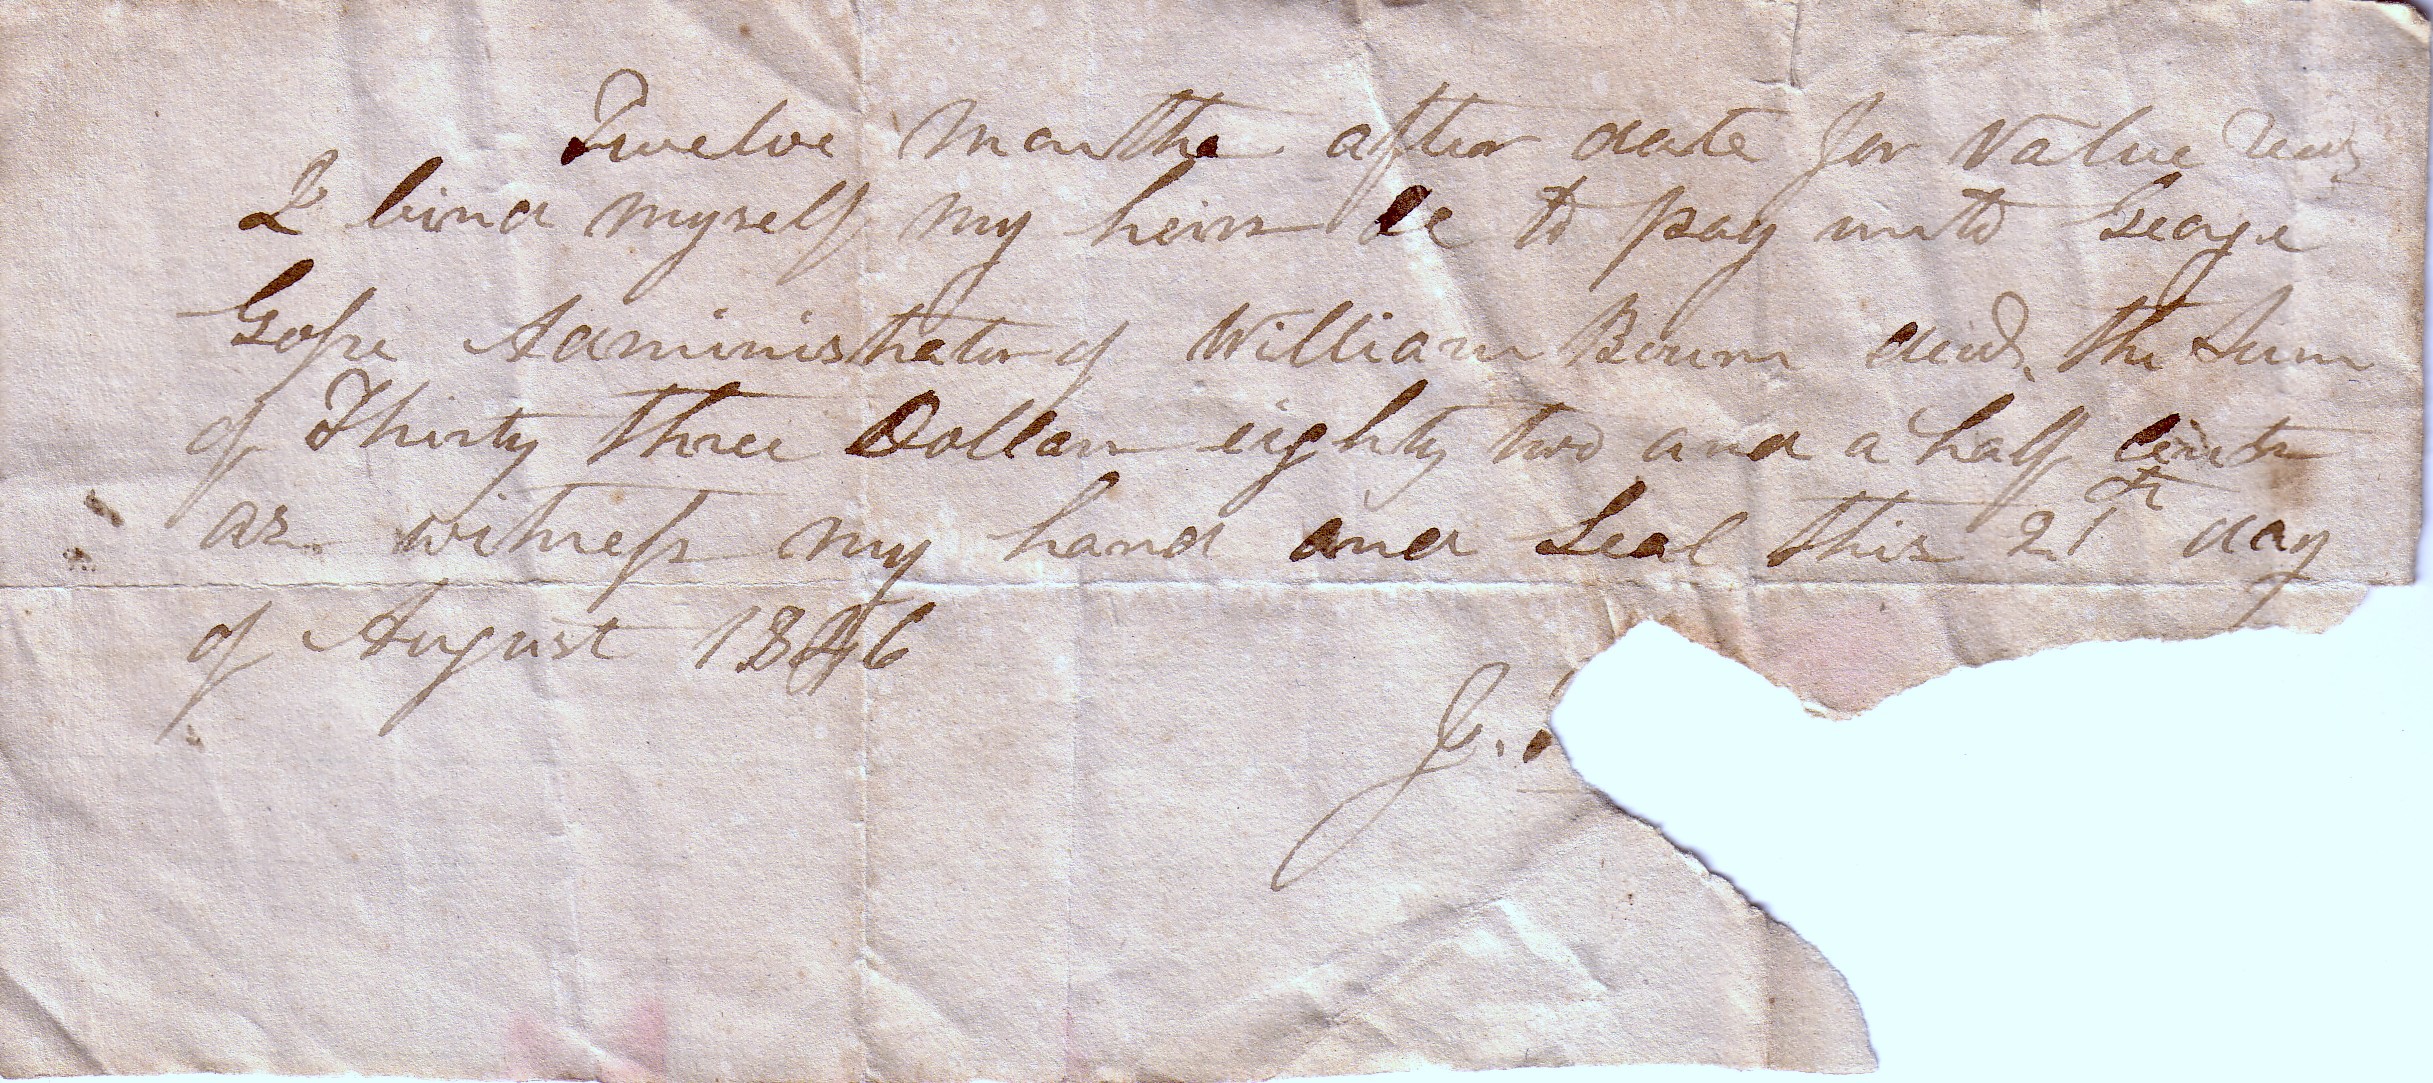 Twelve months after date for value recd
I bind myself my heirs &c to pay unto George
Goſse Administrator of William Bourn decd. the Sum
of Thirty three Dollars eighty two and a half Cents
as witneſs my hand and Seal this 21st day
of August 1846
J.